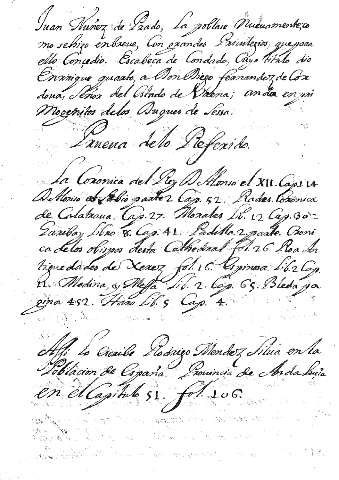 Juan Nuñez de Prado, la poblase Nuevamente, co
mo se hizo en breve, Con grandes Privilexios, que para
ello Concedio. Es cabeza de Condado, Cuyo titulo dio
Enrrique quarto, a Don Diego fernandez de Cor
dova, Señor del Estado de Vaena; anda en pri
Mogenitos de los Duques de Sesa.
Prueva de lo Referido.
La Coronica del Rey D. Alonso el XII. Cap. 14
D. Alonso parte 2 Cap. 52. Rades Coronica
de Calatrava, Cap. 27. Morales Lib. 17 Cap. 30
Garibay Libro 8. Cap. 41. Padilla 2 parte Croni
ca de los obispos desta Cathedral fol. 26 Roa An
tiguedades de Xerez fol. 16. Espinosa Lib. 2 Cap.
11. Medina, y Mesa Lib. 2 Cap. 65. Bleda pa
gina 452. Haro Lib. 5 Cap. 4.
Assi lo escribe Rodrigo Mendez Silva en la
Poblacion de España. Provincia de Andalucia
en el Capitulo 51. fol. 106.